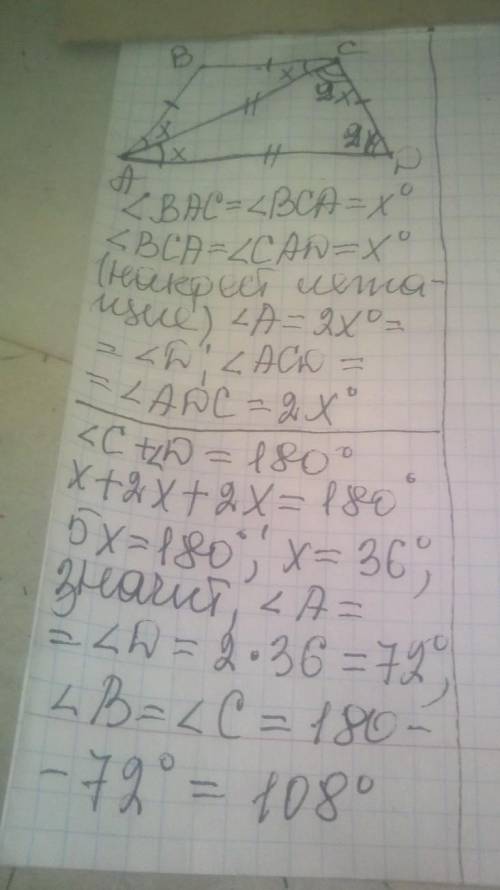 B C
x 2x
x x 2x
A D
∠BAC=∠BCA=x°
∠BCA=∠CAD=x°
(накрест лежа-
щие) ∠A=2x°=
=∠D; ∠ACD=
=∠ADC=2x°
∠C+∠D=180°
x+2x+2x=180°
5x=180°; x=36°,
значит, ∠A=
=∠D=2·36=72°,
∠B=∠C=180-
-72°=108°